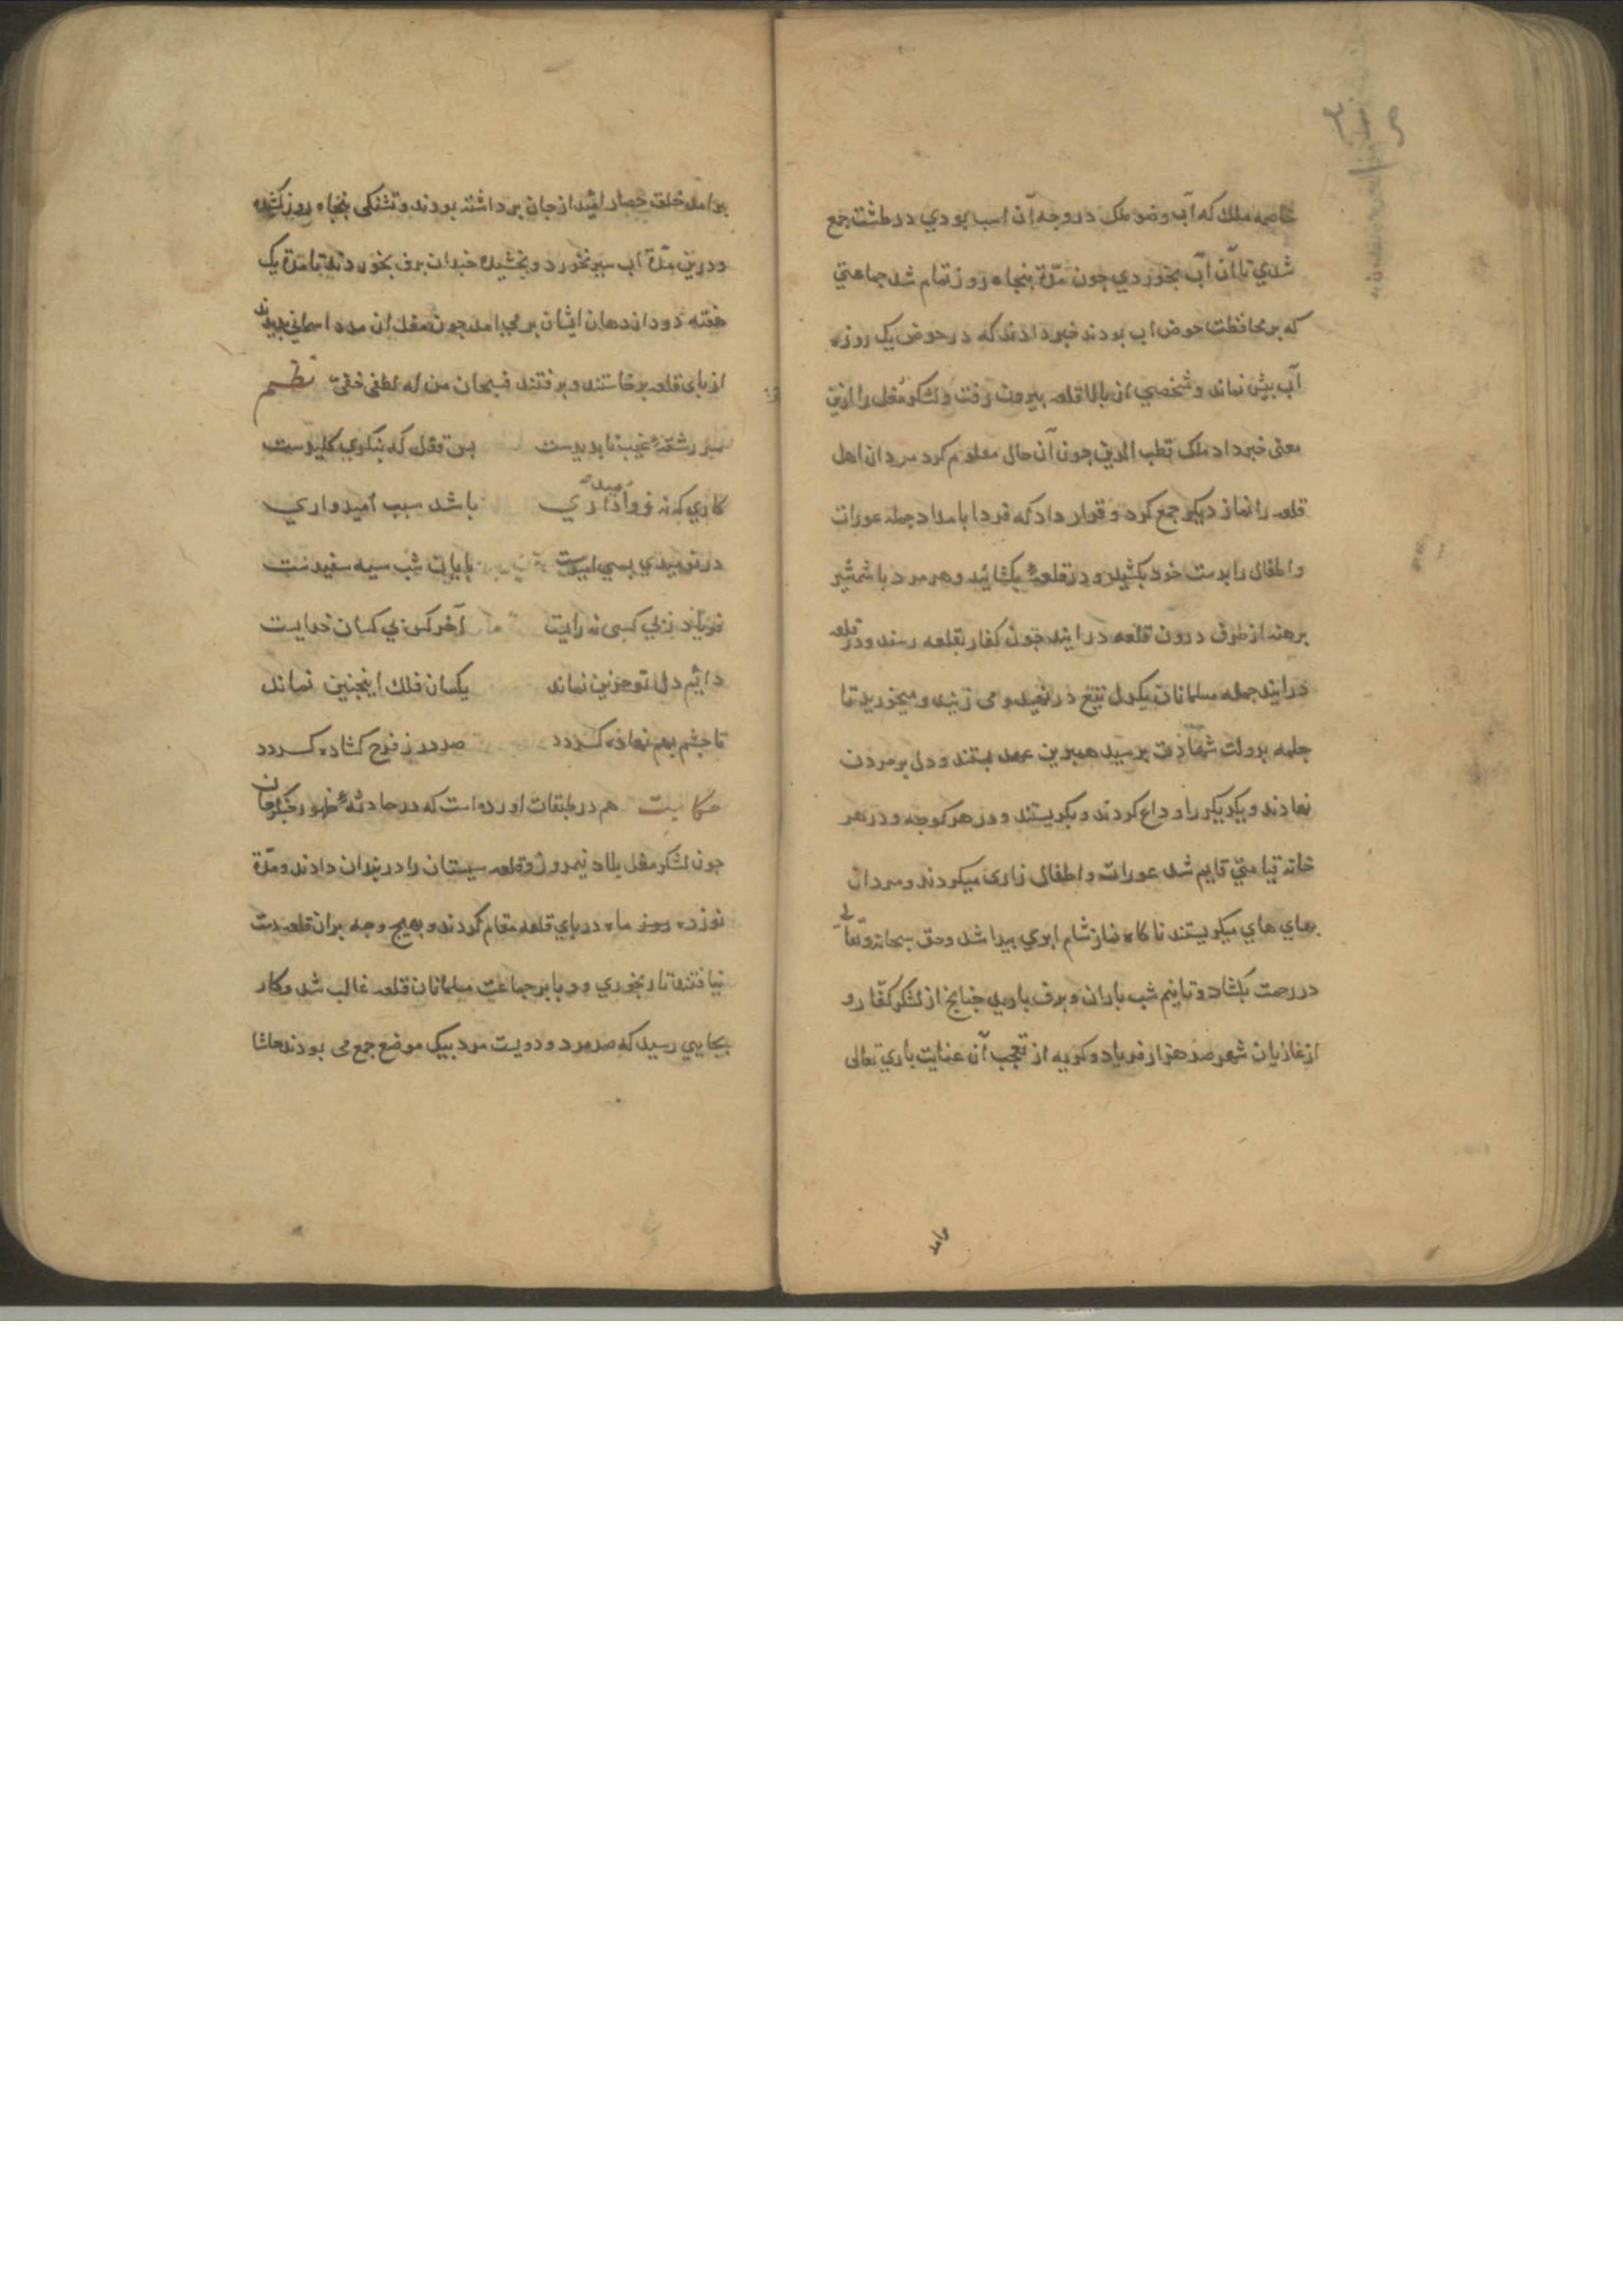 خاصه ملك كه آب وضو ملك در وجه آن اسب بودي در طشت جمع
شدي تا آن آب بخوردي جون مدّة پنجاه روز تمام شد جماعتي
كه بر محافظت حوض اب بودند خبر دادند كه در حوض يك روزه
آب بيش نماند و شخصي از بالا قلعه بيرون رفت و لشكر مغل را ازين
معني خبر داد ملك قطب الدين جون آن حال معلوم كرد مردان اهل
قلعه را نماز ديكر جمع كرد و قرار داد كه فردا بامداد جمله عورات
و اطفال را بدست خود بكشيد و در قلعه بكشائيد و هر مرد با شمشير
برهنه از طرف درون قلعه در ايند جون كفار بقلعه رسند و در قلعه
در ايند جمله مسلمانان يكدل تيغ در نهيد و مي زنيد و ميخوريد تا
جمله بدولت شهادت برسيد همبرين عهد بستند و دل بر مردن
نهادند و يكديكر را وداع كردند و بكريستند و در هر كوجه و در هر
خانه قيامتي قايم شد عورات و اطفال زاري ميكردند و مردان
بهاي هاي ميكريستند ناكاه نماز شام ابري پيدا شد و حق سبحانه و تعالي
در رحمت بكشاد و تا نيم شب باران و برف باريد جنانج از لشكر كفّار و
از غازيان شهر صد هزار فرياد و كريه از تعجب آن عنايت باري تعالى
برامد خلق حصار اميد از جان برداشته بودند و تشنكي پنجاه روز كشيده
و درين مدّة آب سير نخورد و بخشيده جندان برف بخوردند تا مدة يك
هفته دود از دهان ايشان بر مي امد جون مغل ان مدد اسماني بديدند
از باي قلعه برخاستند و برفتند فسبحان من له لطف خفيّ نظم
سر رشتهٔ غيب نا بديدست بس قفل كه بنكري كليدست
كاري كه نه زو اميد داري باشد سبب اميدواري
در نوميدي بسي اميدست پايان شب سيه سفيدست
فرياد ز بي كسي نه رايت آخر كس بي كسان خدايت
دايم دل تو حزين نماند يكسان فلك اينجنين نماند
تا جشم بهم نهاده كردد صد در ز فرح كشاده كردد
حكايت هم در طبقات اورده است كه در حادثهٔ ظهور جنكزخان
جون لشكر مغل بلاد نيمروز و قلعه سيستان را در بندان دادند و مدّة
نوزده روز ماه در باي قلعه مقام كردند و بهيج وجه بران قلعه دست
نيافتند تا رنجوري و وبا بر جماعت مسلمانان قلعه غالب شد و كار
بجايي رسيد كه صد مرد و دويست مرد بيك موضع جمع مي بودند